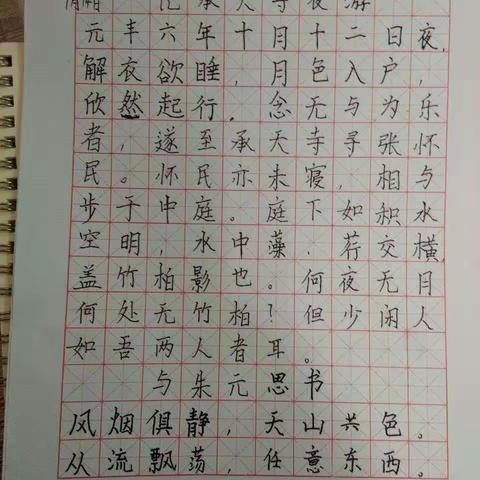 记承天寺夜游
元丰六年十月十二日夜,
解衣欲睡,月色入户,
欣然起行。念无与为乐
者,遂至承天寺寻张怀
民。怀民亦未寝,相与
步于中庭。庭下如积水
空明,水中藻、荇交横,
盖竹柏影也。何夜无月
何处无竹柏?但少闲人
如吾两人者耳。
与朱元思书
风烟俱静,天山共色。
从流飘荡,任意东西。